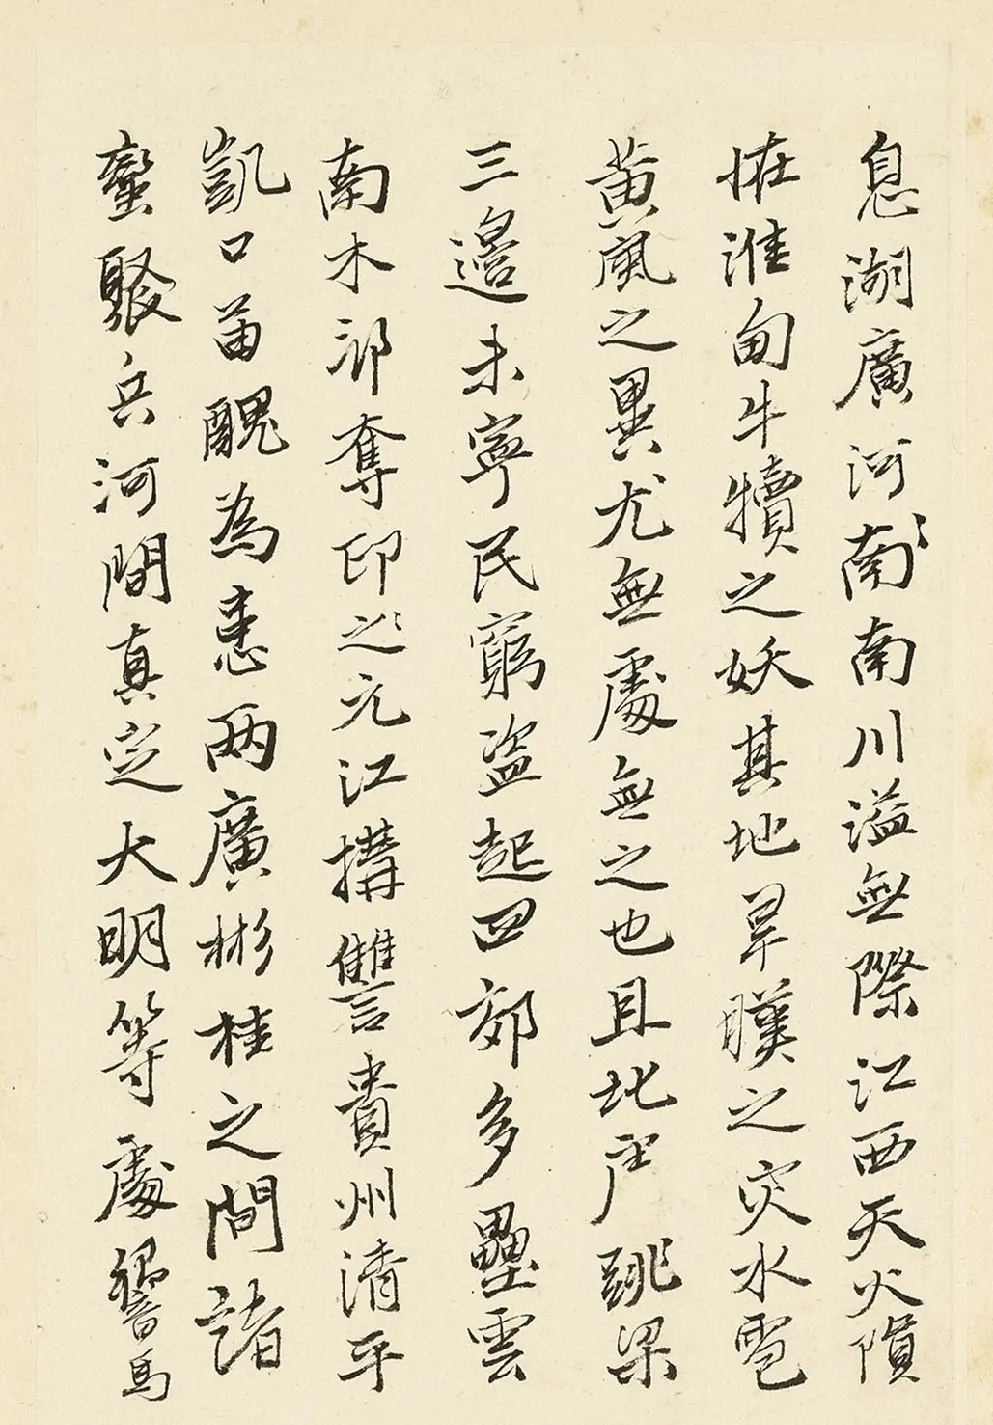 息湖廣河南南川溢無際江西天火隕
恠淮甸牛犢之妖其地旱暵之災水雹
黃風之異尤無處無之也且北虜跳梁
三邊未寧民窮盜起四郊多壘雲
南木邦奪印之元江搆讐貴州清平
凱口苗醜為患兩廣彬桂之間諸
蠻聚兵河間真定大明等處響馬